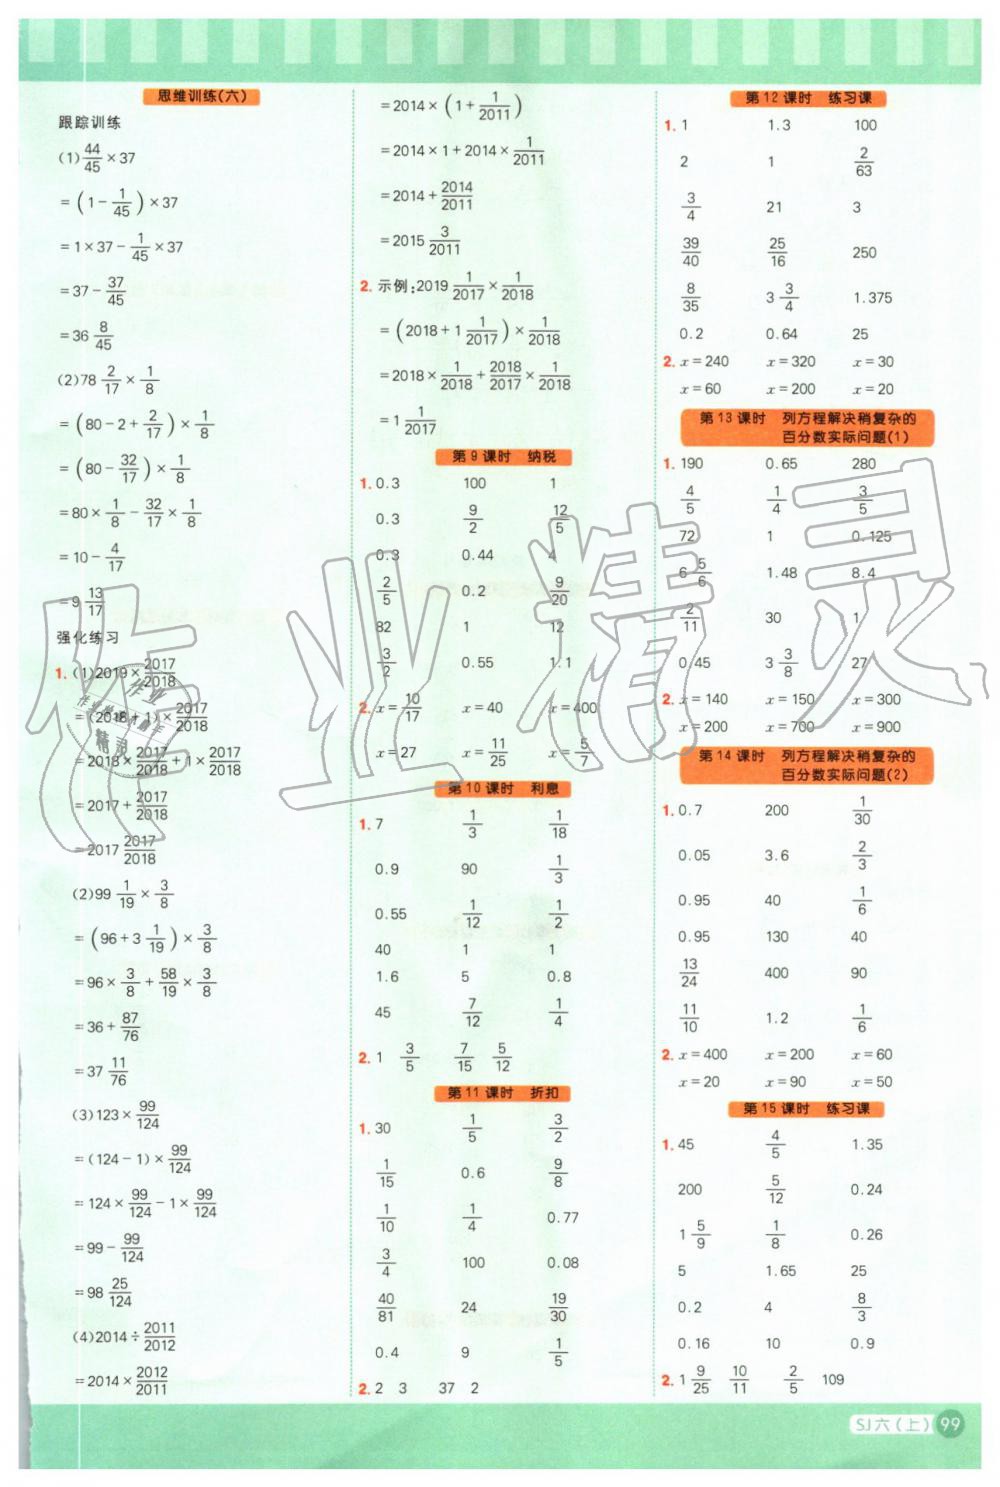 思维训练(六)
跟踪训练
(1)44/45×37
=(1-1/45)×37
=1×37-1/45×37
=37-37/45
=36 8/45
(2)78 2/17×1/8
=(80-2+2/17)×1/8
=(80-32/17)×1/8
=80×1/8-32/17×1/8
=10-4/17
=9 13/17
强化练习
1.(1)2019×2017/2018
=(2018+1)×2017/2018
=2018×2017/2018+1×2017/2018
=2017+2017/2018
=2017 2017/2018
(2)99 1/19×3/8
=(96+3 1/19)×3/8
=96×3/8+58/19×3/8
=36+87/76
=37 11/76
(3)123×99/124
=(124-1)×99/124
=124×99/124-1×99/124
=99-99/124
=98 25/124
(4)2014÷2011/2012
=2014×2012/2011
=2014×(1+1/2011)
=2014×1+2014×1/2011
=2014+2014/2011
=2015 3/2011
2.示例:2019 1/2017×1/2018
=(2018+1 1/2017)×1/2018
=2018×1/2018+2018/2017×1/2018
=1 1/2017
第9课时 纳税
1. 0.3 100 1
0.3 9/2 12/5
0.3 0.44 4
2/5 0.2 9/20
82 1 12
3/2 0.55 1.1
2. x=10/17 x=40 x=400
x=27 x=11/25 x=5/7
第10课时 利息
1. 7 1/3 1/18
0.9 90 1/3
0.55 1/12 1/2
40 1 1
1.6 5 0.8
45 7/12 1/4
2. 1 3/5 7/15 5/12
第11课时 折扣
1. 30 1/5 3/2
1/15 0.6 9/8
1/10 1/4 0.77
3/4 100 0.08
40/81 24 19/30
0.4 9 1/5
2. 2 3 37 2
第12课时 练习课
1. 1 1.3 100
2 1 2/63
3/4 21 3
39/40 25/16 250
8/35 3 3/4 1.375
0.2 0.64 25
2. x=240 x=320 x=30
x=60 x=200 x=20
第13课时 列方程解决稍复杂的
百分数实际问题(1)
1. 190 0.65 280
4/5 1/4 3/5
72 1 0.125
6 5/6 1.48 8.4
2/11 30 1
0.45 3 3/8 27
2. x=140 x=150 x=300
x=200 x=700 x=900
第14课时 列方程解决稍复杂的
百分数实际问题(2)
1. 0.7 200 1/30
0.05 3.6 2/3
0.95 40 1/6
0.95 130 40
13/24 400 90
11/10 1.2 1/6
2. x=400 x=200 x=60
x=20 x=90 x=50
第15课时 练习课
1. 45 4/5 1.35
200 5/12 0.24
1 5/9 1/8 0.26
5 1.65 25
0.2 4 8/3
0.16 10 0.9
2. 1 9/25 10/11 2/5 109
SJ六(上) 99
作业精灵
作业
精灵